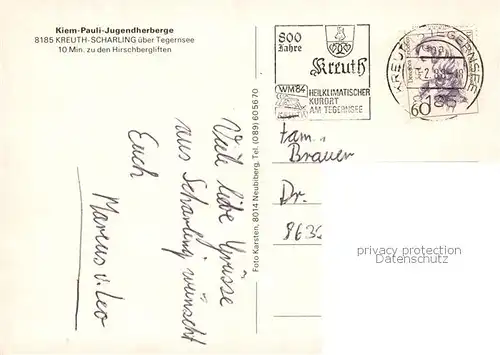 Kiem-Pauli-Jugendherberge
8185 KREUTH-SCHARLING über Tegernsee
10 Min. zu den Hirschbergliften
800
Jahre
Kreuth
WM84
HEILKLIMATISCHER
KURORT
AM TEGERNSEE
KREUTH TEGERNSEE
8185
60
Viele liebe Grüsse
aus Scharling wünscht
Euch
Marcus v. Leo
Foto Karsten, 8014 Neubiberg, Tel. (089) 605670
Fam.
Brauer
Dr.
863
privacy protection
Datenschutz